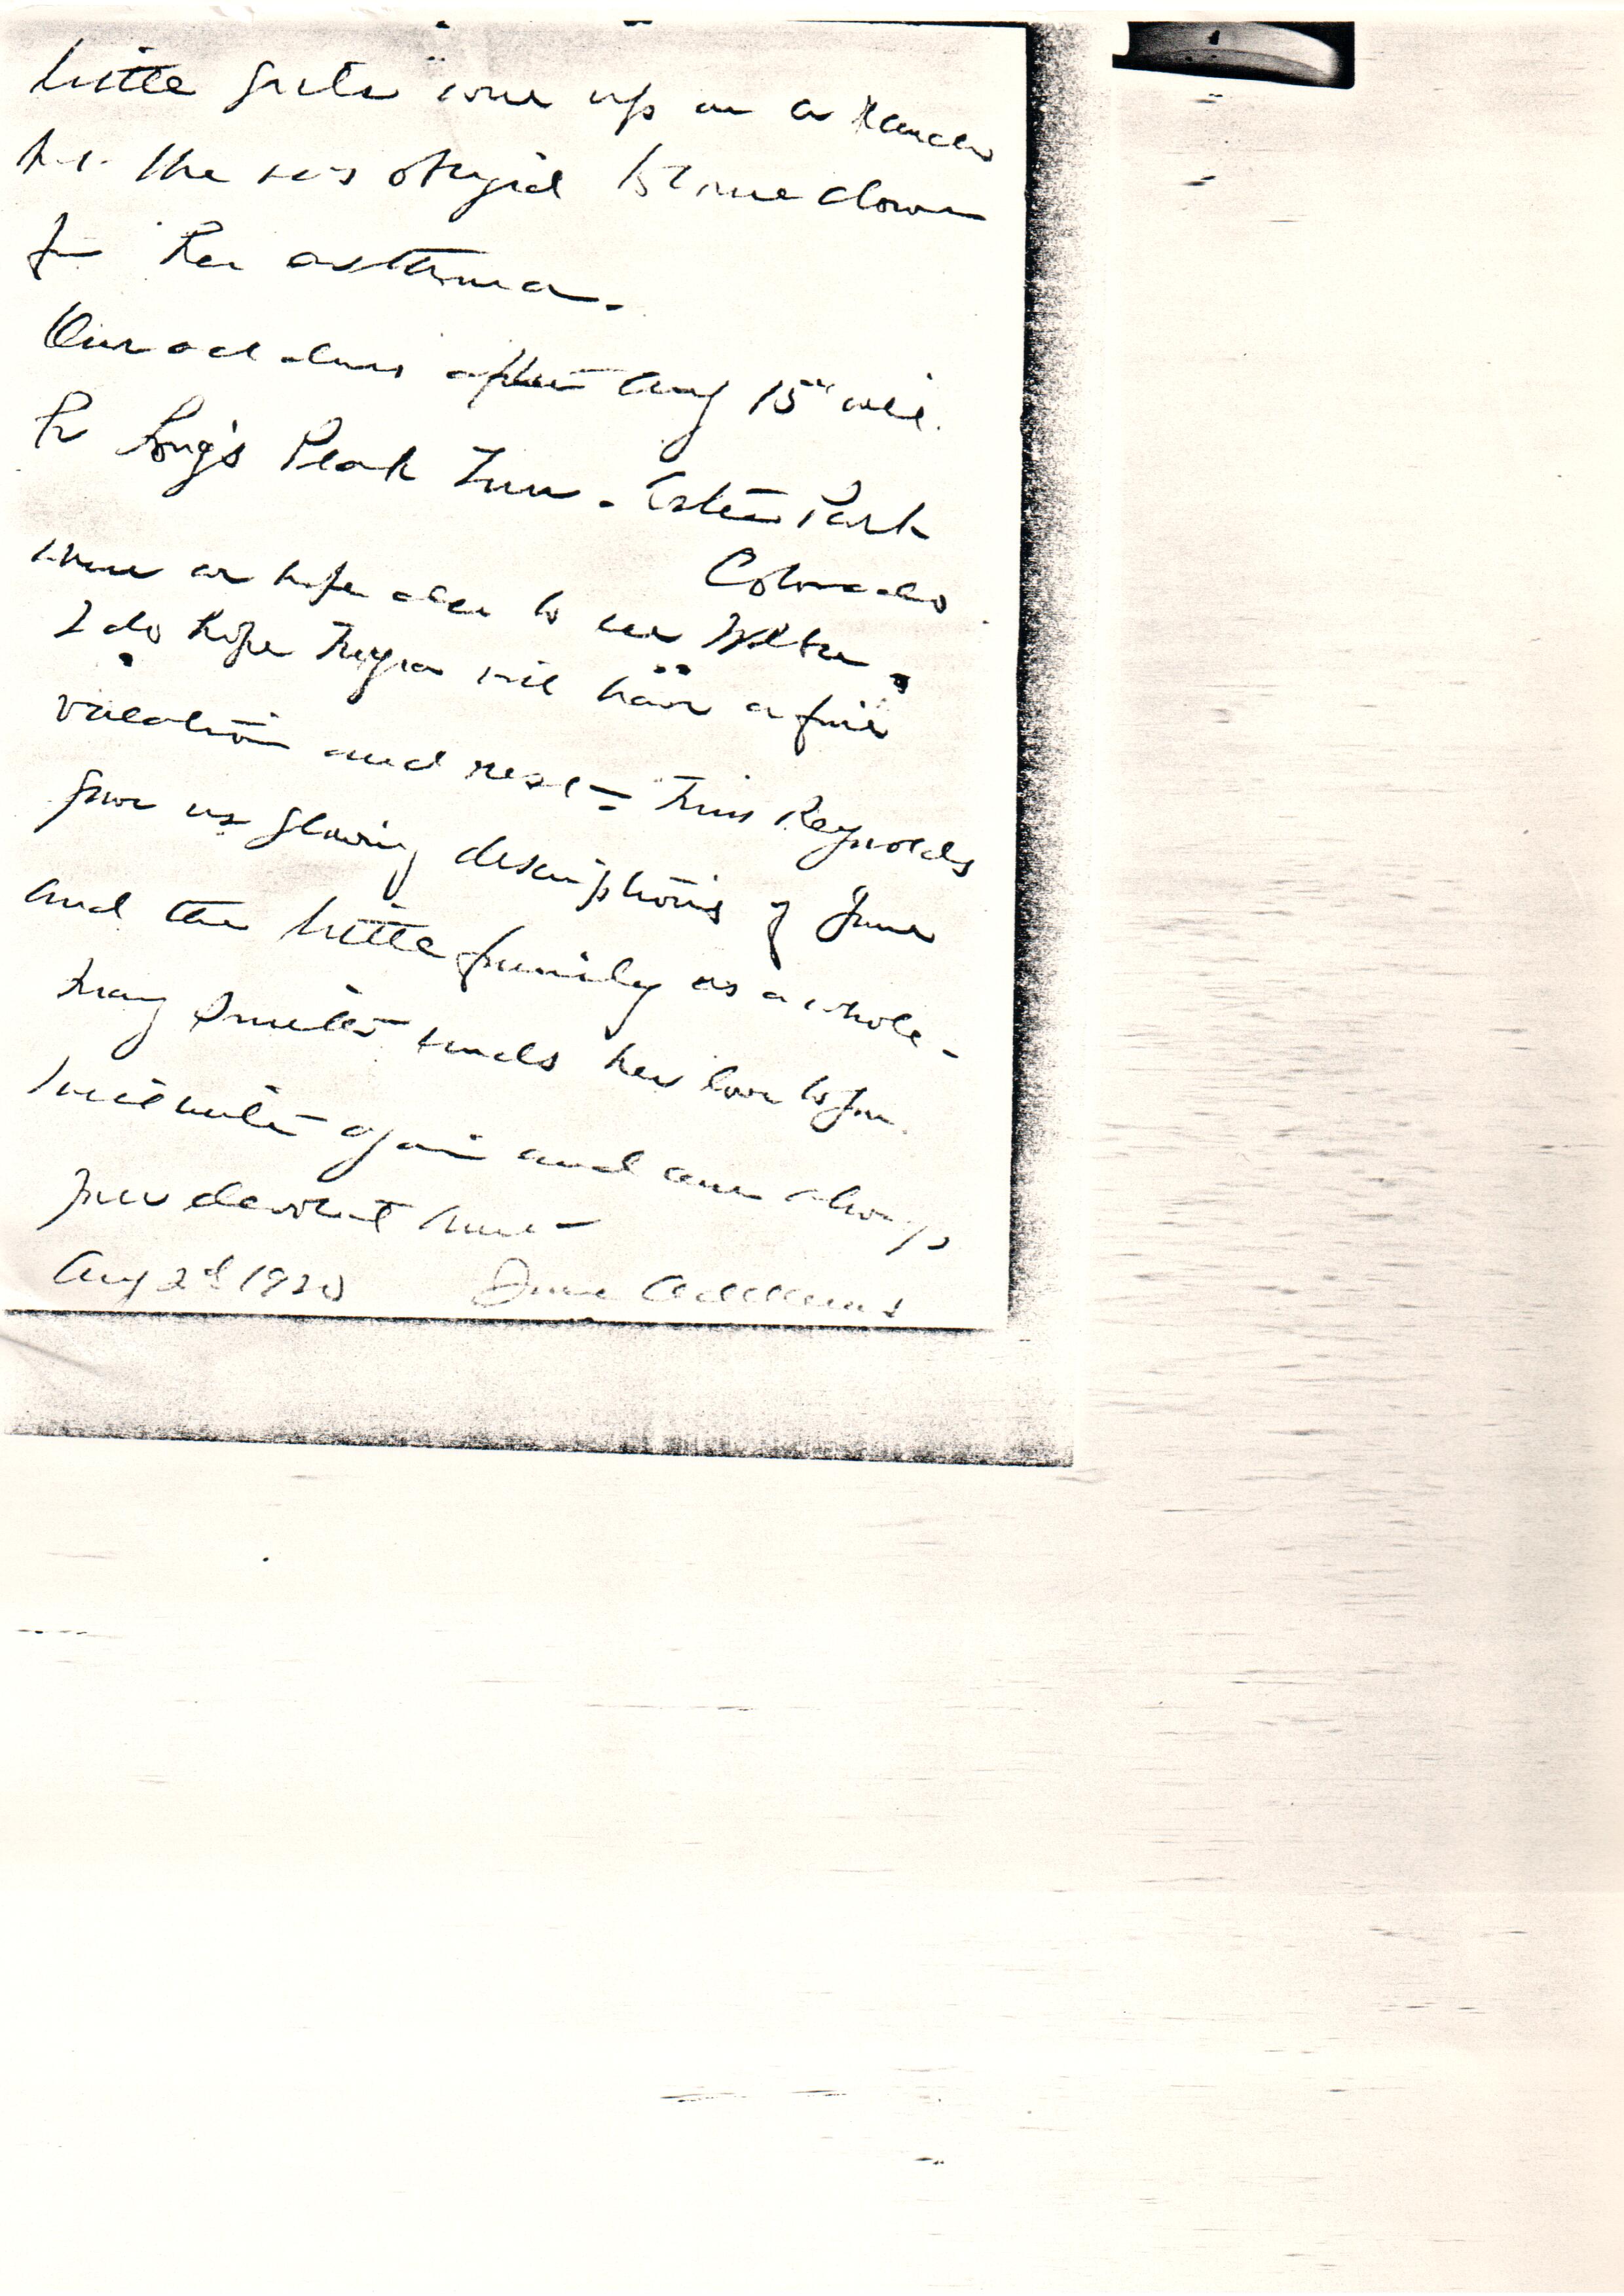 little girls were up on a ranch
but she was obliged to come down
for her asthma.
Our address after Aug 15" will
be Long's Peak Inn - Estes Park
Colorado
where we hope also to see Weber.
I do hope Myra will have a fine
vacation and rest - Miss Reynolds
gave us glowing descriptions of June
and the little family as a whole -
Mary Smith sends her love to you.
I will write again and am always
your devoted Aunt
Aug 2d 1920 Jane Addams